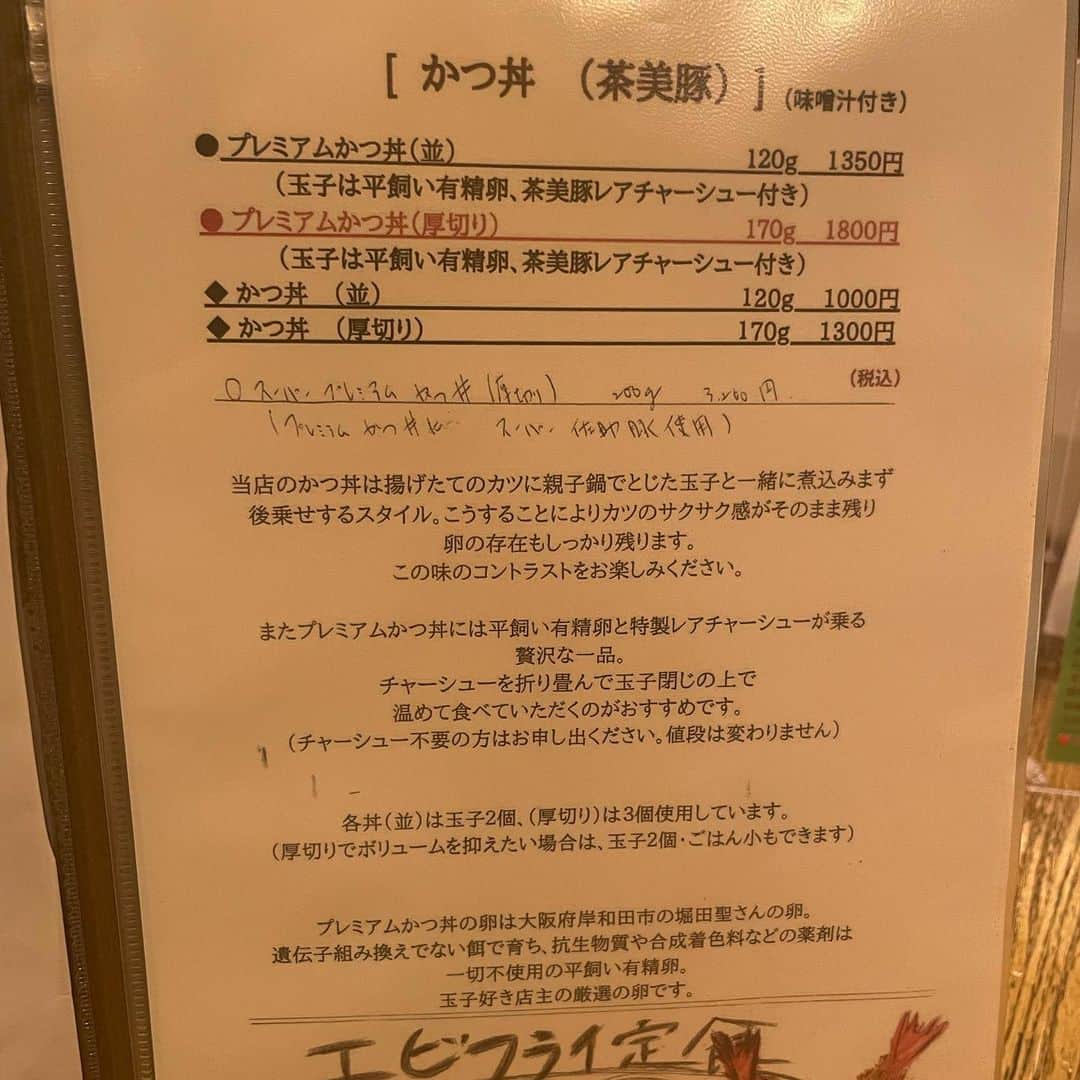 [ かつ丼 （茶美豚）](味噌汁付き)
● プレミアムかつ丼(並) 120g 1350円
(玉子は平飼い有精卵、茶美豚レアチャーシュー付き)
● プレミアムかつ丼(厚切り) 170g 1800円
(玉子は平飼い有精卵、茶美豚レアチャーシュー付き)
◆ かつ丼 (並) 120g 1000円
◆ かつ丼 (厚切り) 170g 1300円
(税込)
○ スーパープレミアム かつ丼(厚切り) 200g 3,200円
(プレミアムかつ丼 スーパー 佐助豚使用)
当店のかつ丼は揚げたてのカツに親子鍋でとじた玉子と一緒に煮込みまず
後乗せするスタイル。こうすることによりカツのサクサク感がそのまま残り
卵の存在もしっかり残ります。
この味のコントラストをお楽しみください。
またプレミアムかつ丼には平飼い有精卵と特製レアチャーシューが乗る
贅沢な一品。
チャーシューを折り畳んで玉子閉じの上で
温めて食べていただくのがおすすめです。
(チャーシュー不要の方はお申し出ください。値段は変わりません)
各丼(並)は玉子2個、(厚切り)は3個使用しています。
(厚切りでボリュームを抑えたい場合は、玉子2個・ごはん小もできます)
プレミアムかつ丼の卵は大阪府岸和田市の堀田聖さんの卵。
遺伝子組み換えでない餌で育ち、抗生物質や合成着色料などの薬剤は
一切不使用の平飼い有精卵。
玉子好き店主の厳選の卵です。
エビフライ定食